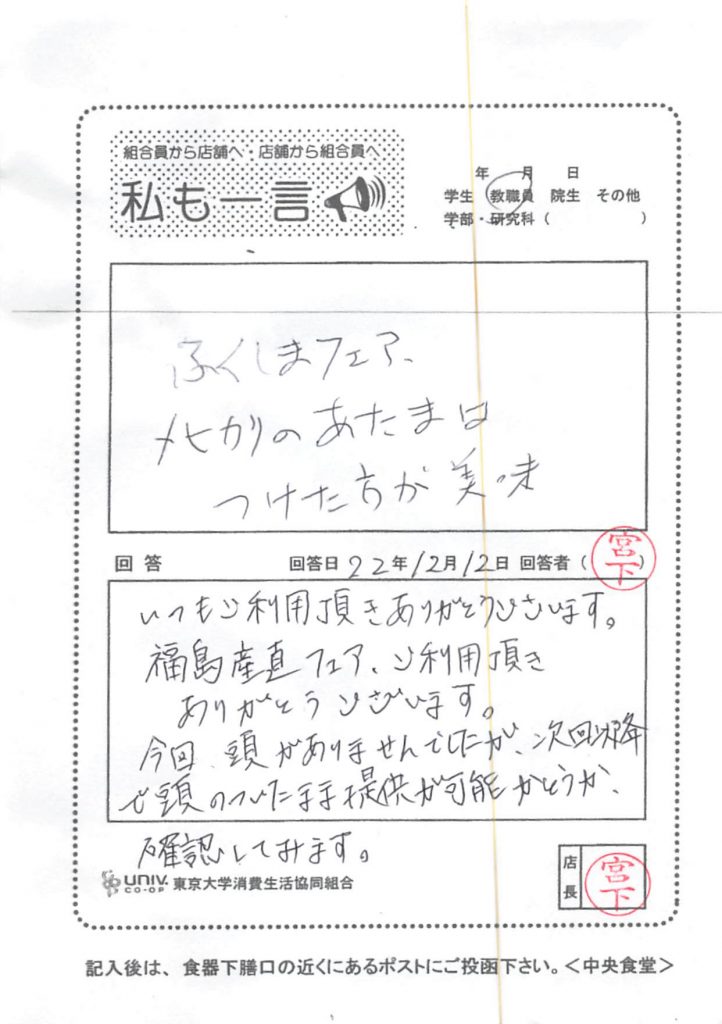 組合員から店舗へ・店舗から組合員へ
私も一言
年 月 日
学生 教職員 院生 その他
学部・研究科( )
ふくしまフェア、
メヒカリのあたまは
つけた方が美味
回答 回答日 22年12月12日 回答者( 宮下 )
いつもご利用頂きありがとうございます。
福島産直フェア、ご利用頂き
ありがとうございます。
今回、頭がありませんでしたが、次回以降
で頭のついたまま提供が可能かどうか、
確認してみます。
店長 宮下
UNIV. CO-OP 東京大学消費生活協同組合
記入後は、食器下膳口の近くにあるポストにご投函下さい。<中央食堂>